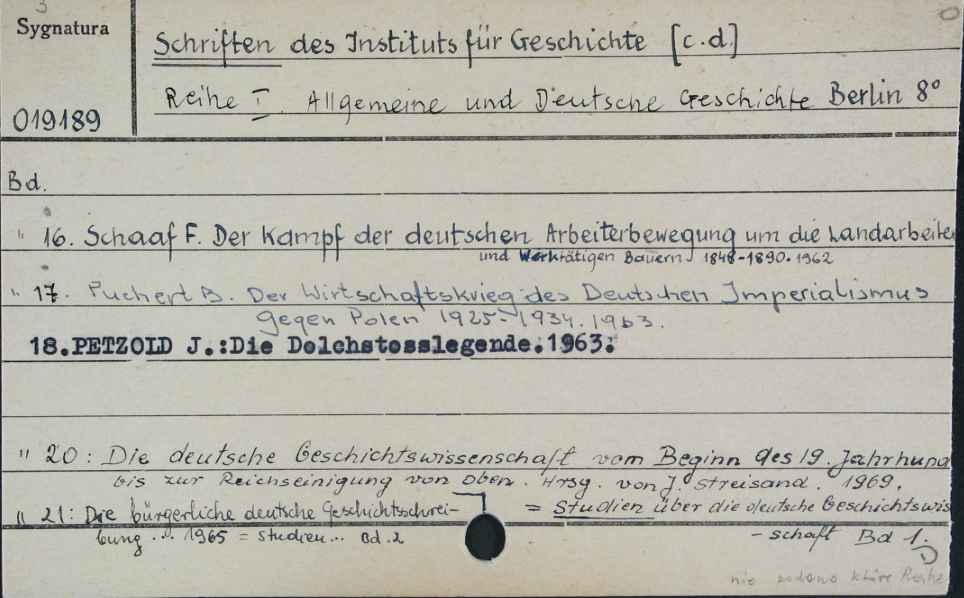 3
Sygnatura
Schriften des Instituts für Geschichte [c.d.]
Reihe I. Allgemeine und Deutsche Geschichte Berlin 8°
019189
Bd.
" 16. Schaaf F. Der Kampf der deutschen Arbeiterbewegung um die Landarbeiter
und Werktätigen Bauern 1848-1890. 1962
" 17. Puchert B. Der Wirtschaftskrieg des Deutschen Imperialismus
gegen Polen 1925-1934. 1963.
18.PETZOLD J.:Die Dolchstosslegende.1963.
" 20: Die deutsche Geschichtswissenschaft vom Beginn des 19. Jahrhund
bis zur Reichseinigung von oben. Hrsg. von J. Streisand. 1969.
= Studien über die deutsche Geschichtswis
- schaft Bd 1.
" 21: Die bürgerliche deutsche Geschichtsschrei-
bung ... 1965 = Studien... Bd. 2
nie podano które Reihe